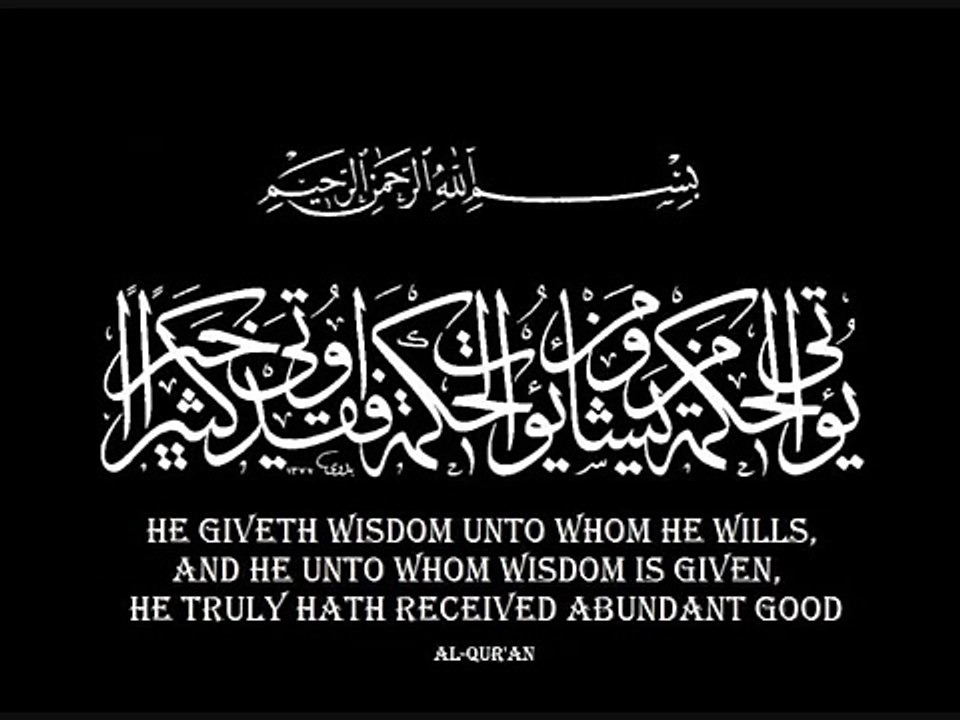 بِسْمِ اللهِ الرَّحْمٰنِ الرَّحِيْمِ
يُؤتِى الحكمةَ مَن يَشاءُ وَمَن يُؤتَ الحكمةَ فَقَد اُوتِىَ خَيرًا كثيرًا
HE GIVETH WISDOM UNTO WHOM HE WILLS,
AND HE UNTO WHOM WISDOM IS GIVEN,
HE TRULY HATH RECEIVED ABUNDANT GOOD
AL-QUR'AN